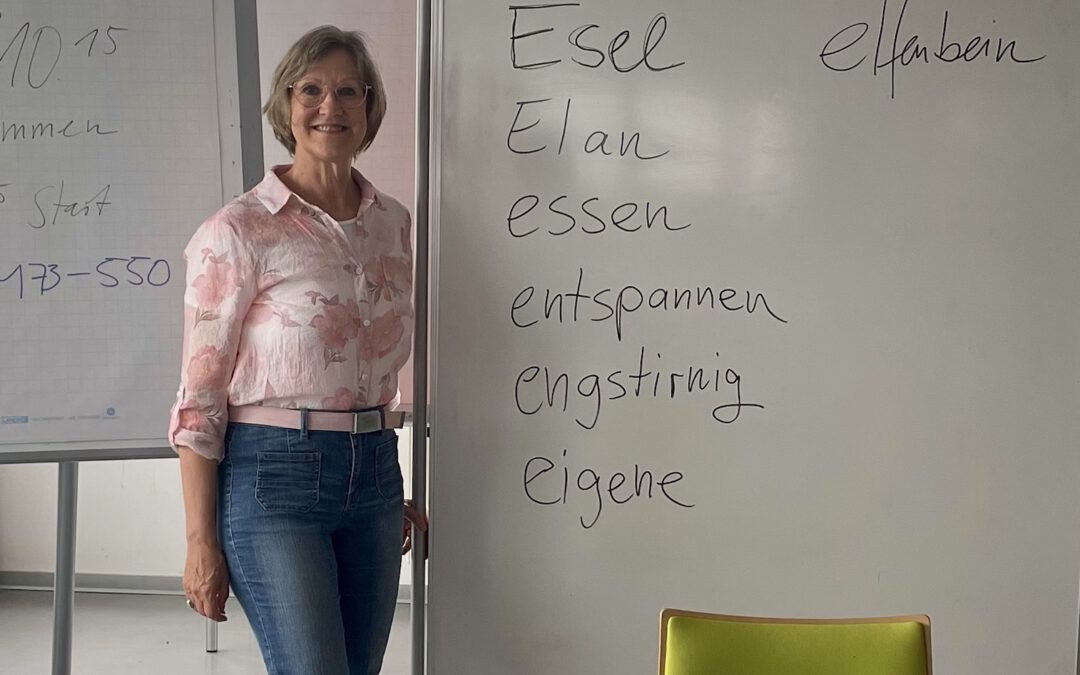 10.15
mmen
Start
173-550
Esel
Elan
essen
entspannen
engstirnig
eigene
elfenbein